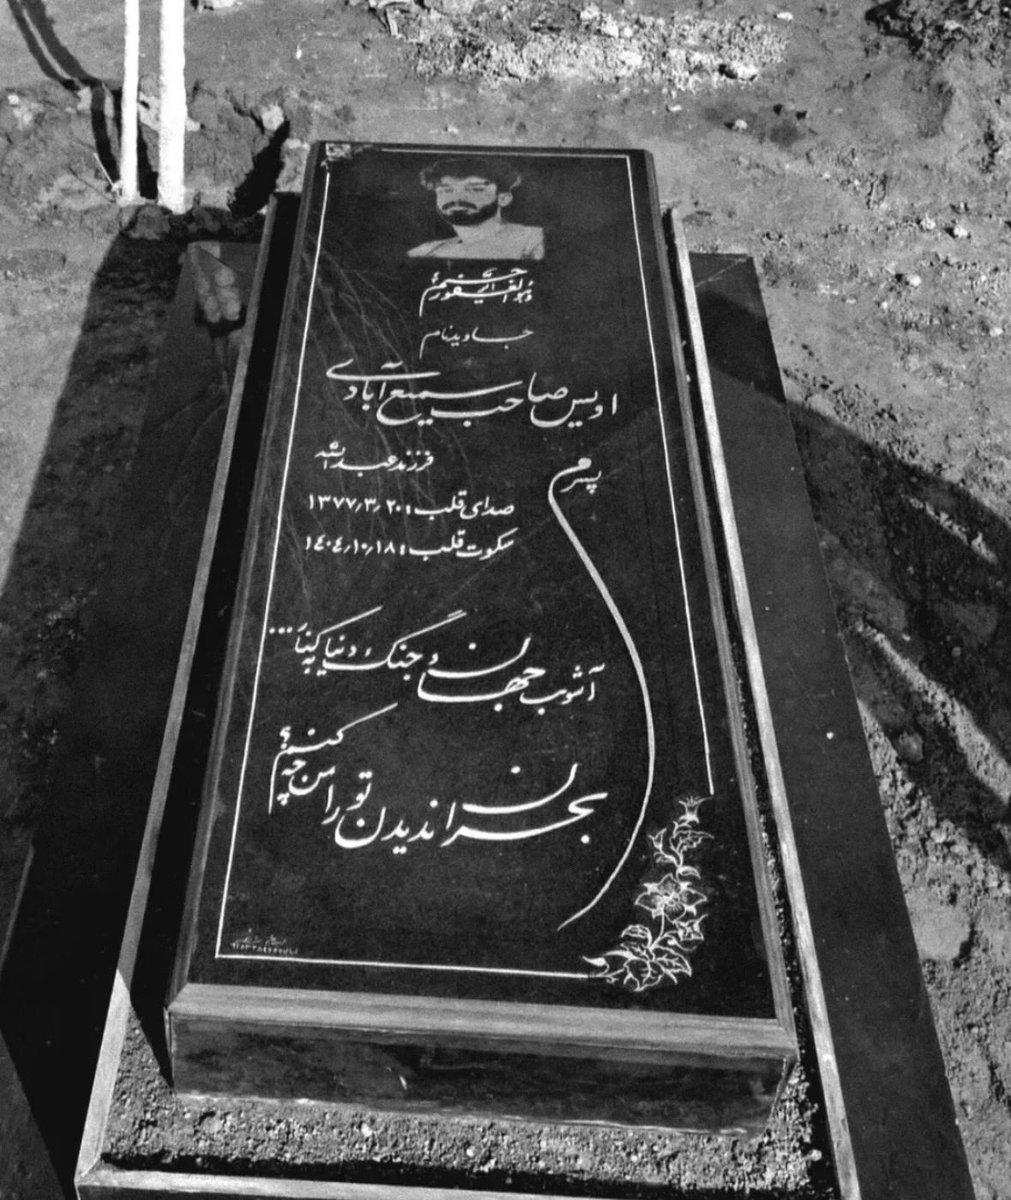 وهو الغفور الرحیم
جاویدنام
اویس صاحب سمیع آبادی
فرزند عبدالله
پسرم
صدای قلب: ۱۳۷۷/۳/۲۰
سکوت قلب: ۱۴۰۴/۱۰/۱۸
آشوب جهان و جنگ دنیا به کنار...
بحران ندیدن تو را من چه کنم؟